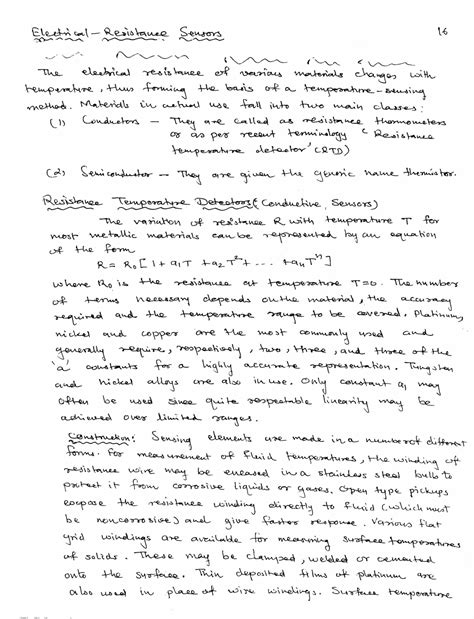 Electrical - Resistance Sensors
16
The electrical resistance of various materials changes with
temperature, thus forming the basis of a temperature-sensing
method. Materials in actual use fall into two main classes:
(1) Conductors — They are called as resistance thermometers
or as per recent terminology 'Resistance
temperature detector' (RTD)
(2) Semiconductor — They are given the generic name thermistor.
Resistance Temperature Detectors (Conductive Sensors)
The variation of resistance R with temperature T for
most metallic materials can be represented by an equation
of the form
R = R₀ [1 + a₁T + a₂T² + ... + aₙTⁿ]
where R₀ is the resistance at temperature T=0. The number
of terms necessary depends on the material, the accuracy
required and the temperature range to be covered. Platinum,
nickel and copper are the most commonly used and
generally require, respectively, two, three, and three of the
'a' constants for a highly accurate representation. Tungsten
and nickel alloys are also in use. Only constant a₁ may
often be used since quite respectable linearity may be
achieved over limited ranges.
Construction: Sensing elements are made in a number of different
forms. For measurement of fluid temperatures, the winding of
resistance wire may be encased in a stainless steel bulb to
protect it from corrosive liquids or gases. Open type pickups
expose the resistance winding directly to fluid (which must
be noncorrosive) and give faster response. Various flat
grid windings are available for measuring surface temperatures
of solids. These may be clamped, welded or cemented
onto the surface. Thin deposited films of platinum are
also used in place of wire windings. Surface temperature